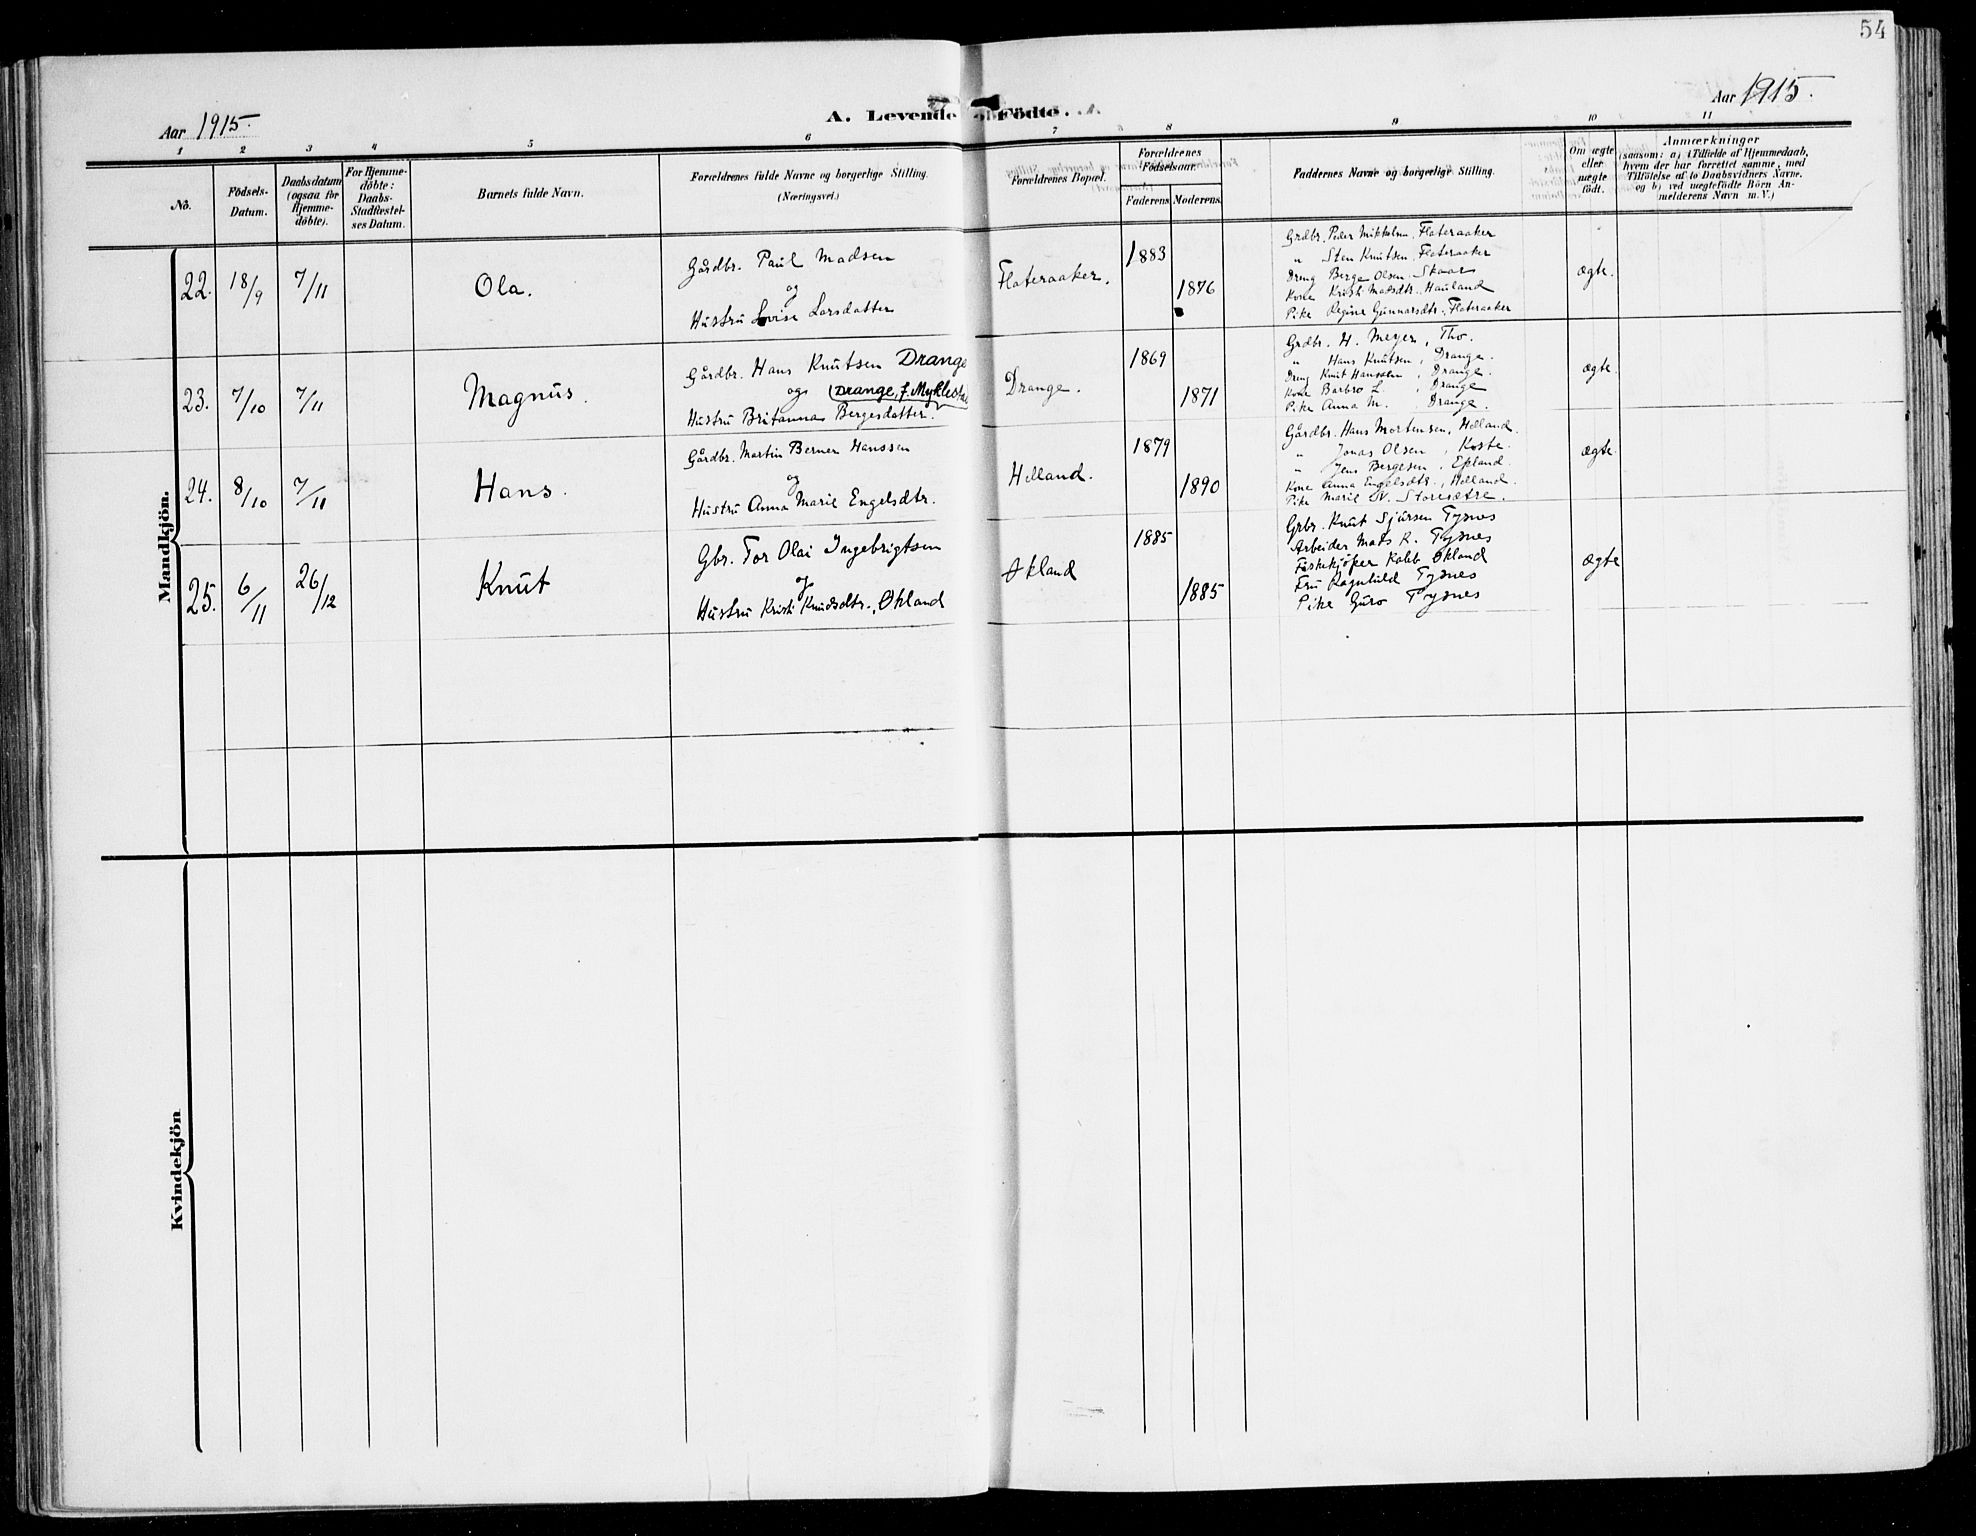 54
A. Levende Födte.
Aar 1915.
Aar 1915.
1 2 3 4 5 6 7 8 9 10 11
No.
Födsels-
Datum.
Daabsdatum
(ogsaa for
Hjemme-
döbte).
For Hjemme-
döbte:
Daabs-
Stadfæstel-
ses Datum.
Barnets fulde Navn.
Forældrenes fulde Navne og borgerlige Stilling.
(Næringsvei.)
Forældrenes Bopæl.
Forældrenes
Födselsaar.
Faderens Moderens.
Faddernes Navne og borgerlige Stilling.
Om ægte
eller
uægte
födt.
Anmærkninger
(saasom: a) i Tilfælde af Hjemmedaab,
hvem der har forrettet samme, med
Tilföielse af to Daabsvidners Navne.
og b) ved uægtefödte Börn An-
melderens Navn m. V.)
Mandkjön.
22. 18/9 7/11 Ola.
Gårdbr. Paul Madsen
og
Hustru Lovise Larsdatter
Flateraaker. 1883 1876
Grdbr. Peder Mikkelsen, Flateraaker
" Sten Knutsen, Flateraaker
Dreng Berge Olsen Skaar
Kone Kristi Madsdtr. Hauland
Pike Regine Gunnarsdtr., Flateraaker
ægte.
23. 7/10 7/11 Magnus.
Gårdbr. Hans Knutsen Drange
og (Drange, f. Myklestad
Hustru Britanna Bergesdatter.
Drange. 1869 1871
Grdbr. H. Meyer, Tho.
" Hans Knutsen, Drange.
Dreng Knut Hanssen, Drange.
Kone Barbro L. , Drange
Pike Anna M. , Drange.
ægte.
24. 8/10 7/11 Hans.
Gårdbr. Martin Berner Hanssen
og
Hustru Anna Marie Engelsdtr.
Holland. 1879 1890
Gårdbr. Hans Mortensen, Holland.
" Jonas Olsen, Koste.
" Jens Bergesen, Epland.
Kone Anna Engelsdtr., Holland.
Pike Marie N. Storesætre.
ægte.
25. 6/11 26/12 Knut
Gbr. Tor Olai Ingebrigtsen
og
Hustru Kristi Knudsdtr., Økland
Økland 1885 1885
Grbr. Knut Sjursen Tysnes
Arbeider Mads K. Tysnes
Fiskekjøper Kabb Økland
Fru Ragnhild Tysnes
Pike Guro Tysnes
ægte
Kvindekjön